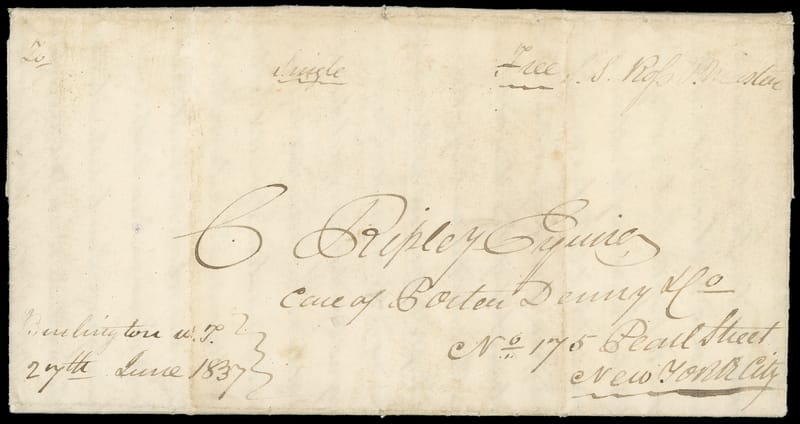 To
Single
Free S. S. Ross P. Master
C Ripley Esquire
care of Porter Denny & Co
No 175 Pearl Street
New York City
Burlington W. T.
27th June 1837